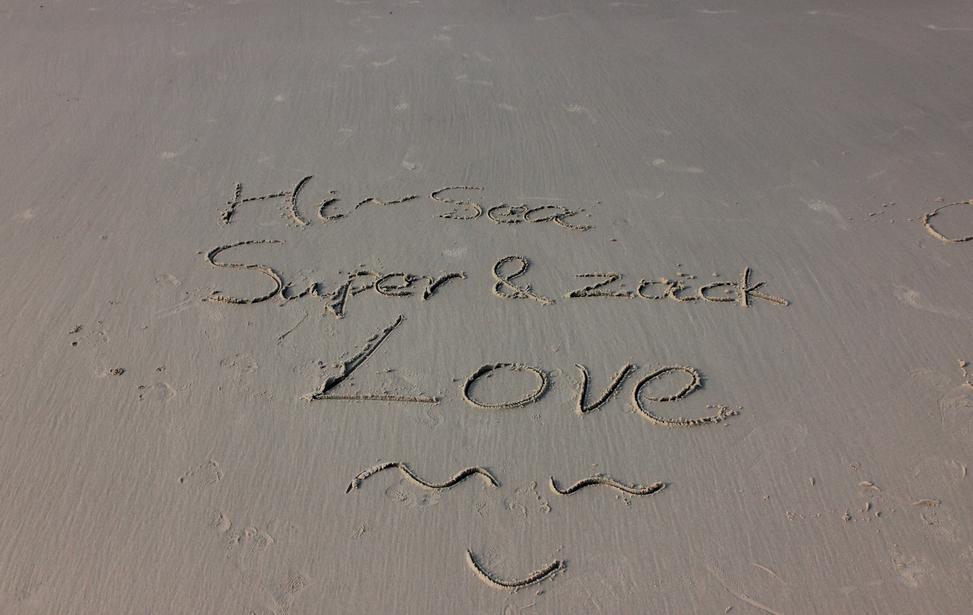 Hi~Sea
Super & zack
Love